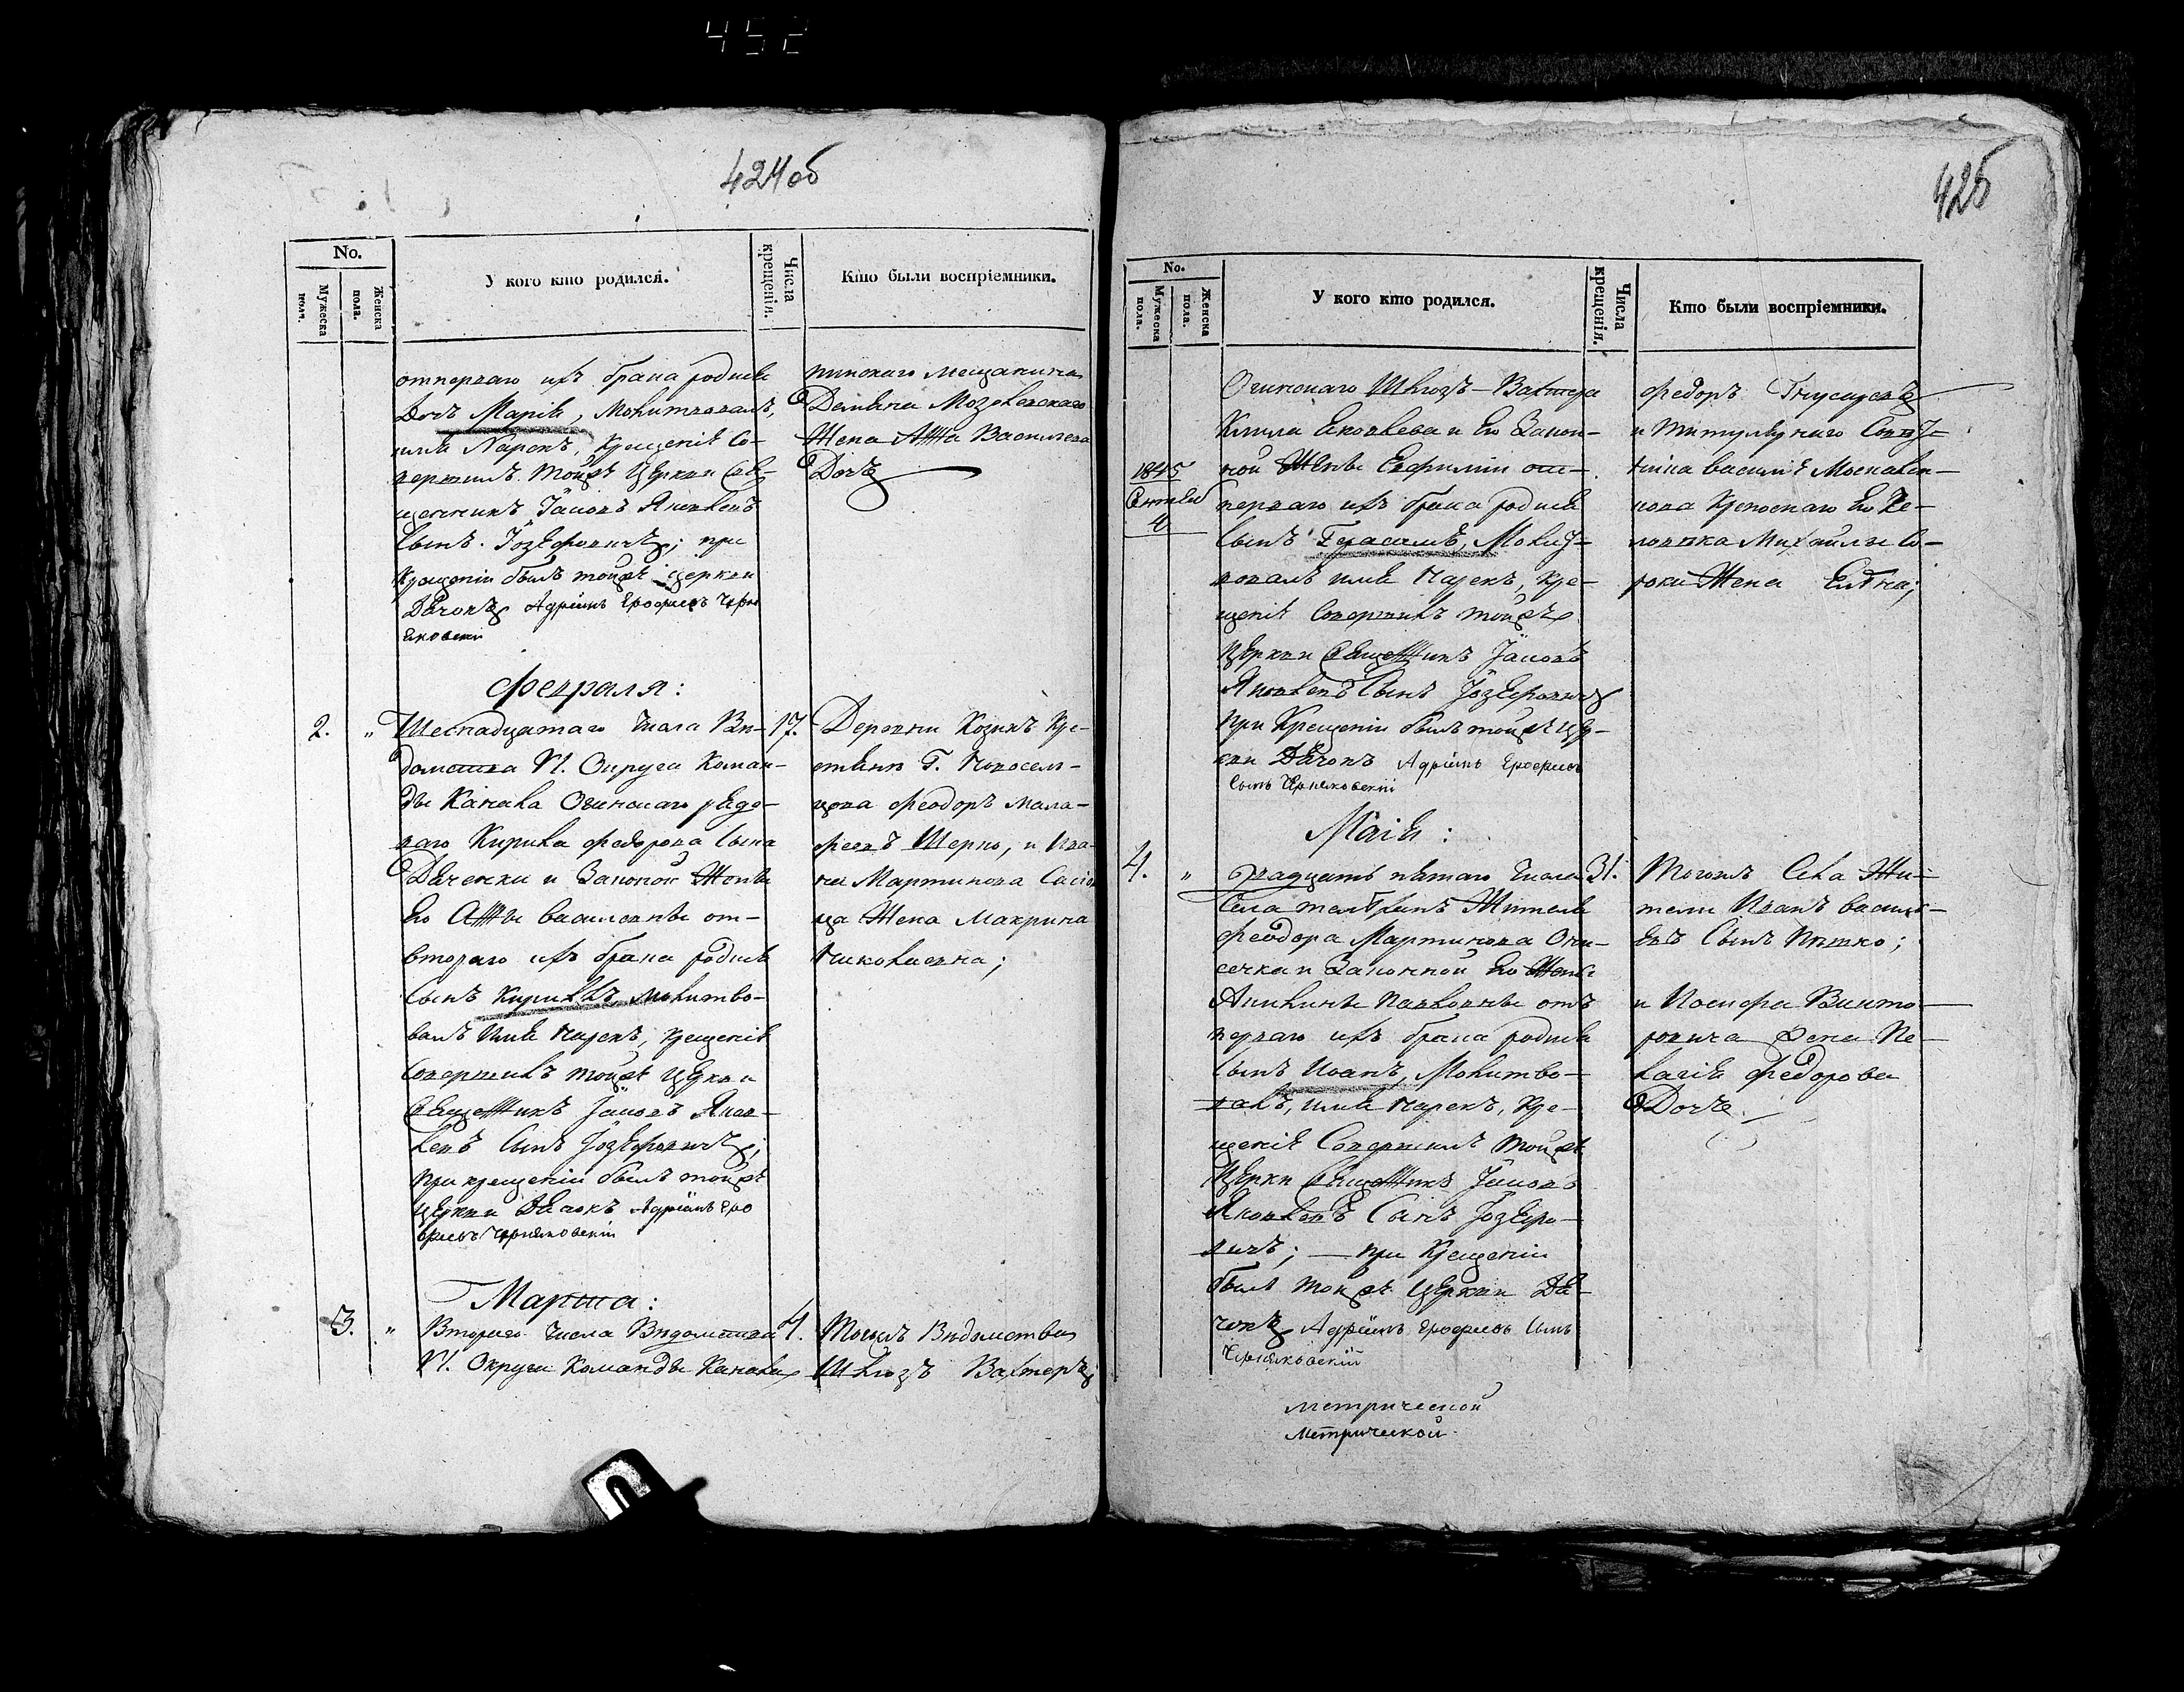 452
424об
No.
Мужеска пола.
Женска пола.
У кого кто родился.
Числа крещенія.
Кто были воспріемники.
отперваго ихъ брака родила
Дочъ Марія, Молитвовалъ,
имя Нарекъ, Крещеніе Со-
вершилъ тойже Церкви Свя-
щенникъ Іаковъ Яковлевъ
Сынъ Іозефовичъ; при
Крещеніи былъ тойже церкви
Дячокъ Адріянъ Ерофиевъ Черня
ховскій
пинскаго мещанина
Демяна
Жена Анна Василева
Дочъ
Февраля:
2. " Шеснадцатаго Числа Вѣ- 17.
домства VI. Округа Коман-
ды Канала Огинскаго рядо-
ваго Кирила Федорова Сына
Дяченки и Законой Жоны
Его Анны василовны от-
втораго ихъ брака родила
Сынъ Кириллъ, молитво-
валъ Имя Нарекъ, Крещеніе
Совершилъ тойже Церкви
Священникъ Іаковъ Яков-
левъ Сынъ Іозефовичъ;
при крещеніи былъ тойже
церкви Дячокъ Адріянъ Еро
фиевъ Черняховскій
Деревни Козикъ Кре-
стянин Г.
Феодоръ Мала-
феевъ Шерко, и Ива-
на Мартинова
Жена Макрина
Николаевна;
Марта:
3. " Втораго Числа Вѣдомства 4.
VI. Округи Команды Канала
Тогожъ Вѣдомства
Шлюзъ Вахтеръ
425
No.
Мужеска пола.
Женска пола.
У кого кто родился.
Числа крещенія.
Кто были воспріемники.
1845
4
Огинскаго Шлюзъ-Вахтера
Яковлева и Его Закон-
ной Жены Евфиміи от-
перваго ихъ брака родила
Сынъ Герасимъ, Молит-
вовалъ имя Нарекъ, Кре-
щеніе Совершилъ тойже
Церкви Священникъ Іаковъ
Яковлевъ Сынъ Іозефовичъ
при Крещеніи былъ тойже Цер-
кви Дячокъ Адріянъ Ерофиевъ
Сынъ Черняховскій
Федоръ
и Титулярнаго Совѣт-
Крепоснаго Его Че-
ловѣка Михайлы Со-
роки Жена Елена;
Маія:
4. " Двадцать пятаго Числа 31.
Села телеханъ Жителя
Феодора Мартинова
и Законной Его Жены
Акилины Павловны отъ
перваго ихъ брака родила
Сынъ Иоанъ, Молитво-
валъ, имя Нарекъ, Кре-
щеніе Совершилъ тойже
Церкви Священникъ Іаковъ
Яковлевъ Сынъ Іозефо-
вичъ; — при Крещеніи
былъ тойже Церкви Дя-
чокъ Адріянъ Ерофиевъ Сынъ
Черняховскій
Тогожъ Села Жи-
тели Иванъ василь-
евъ Сынъ
и Иосифа Викто-
ровича Жена Пе-
лагія Федорова
Дочъ.
метрической
Метрической